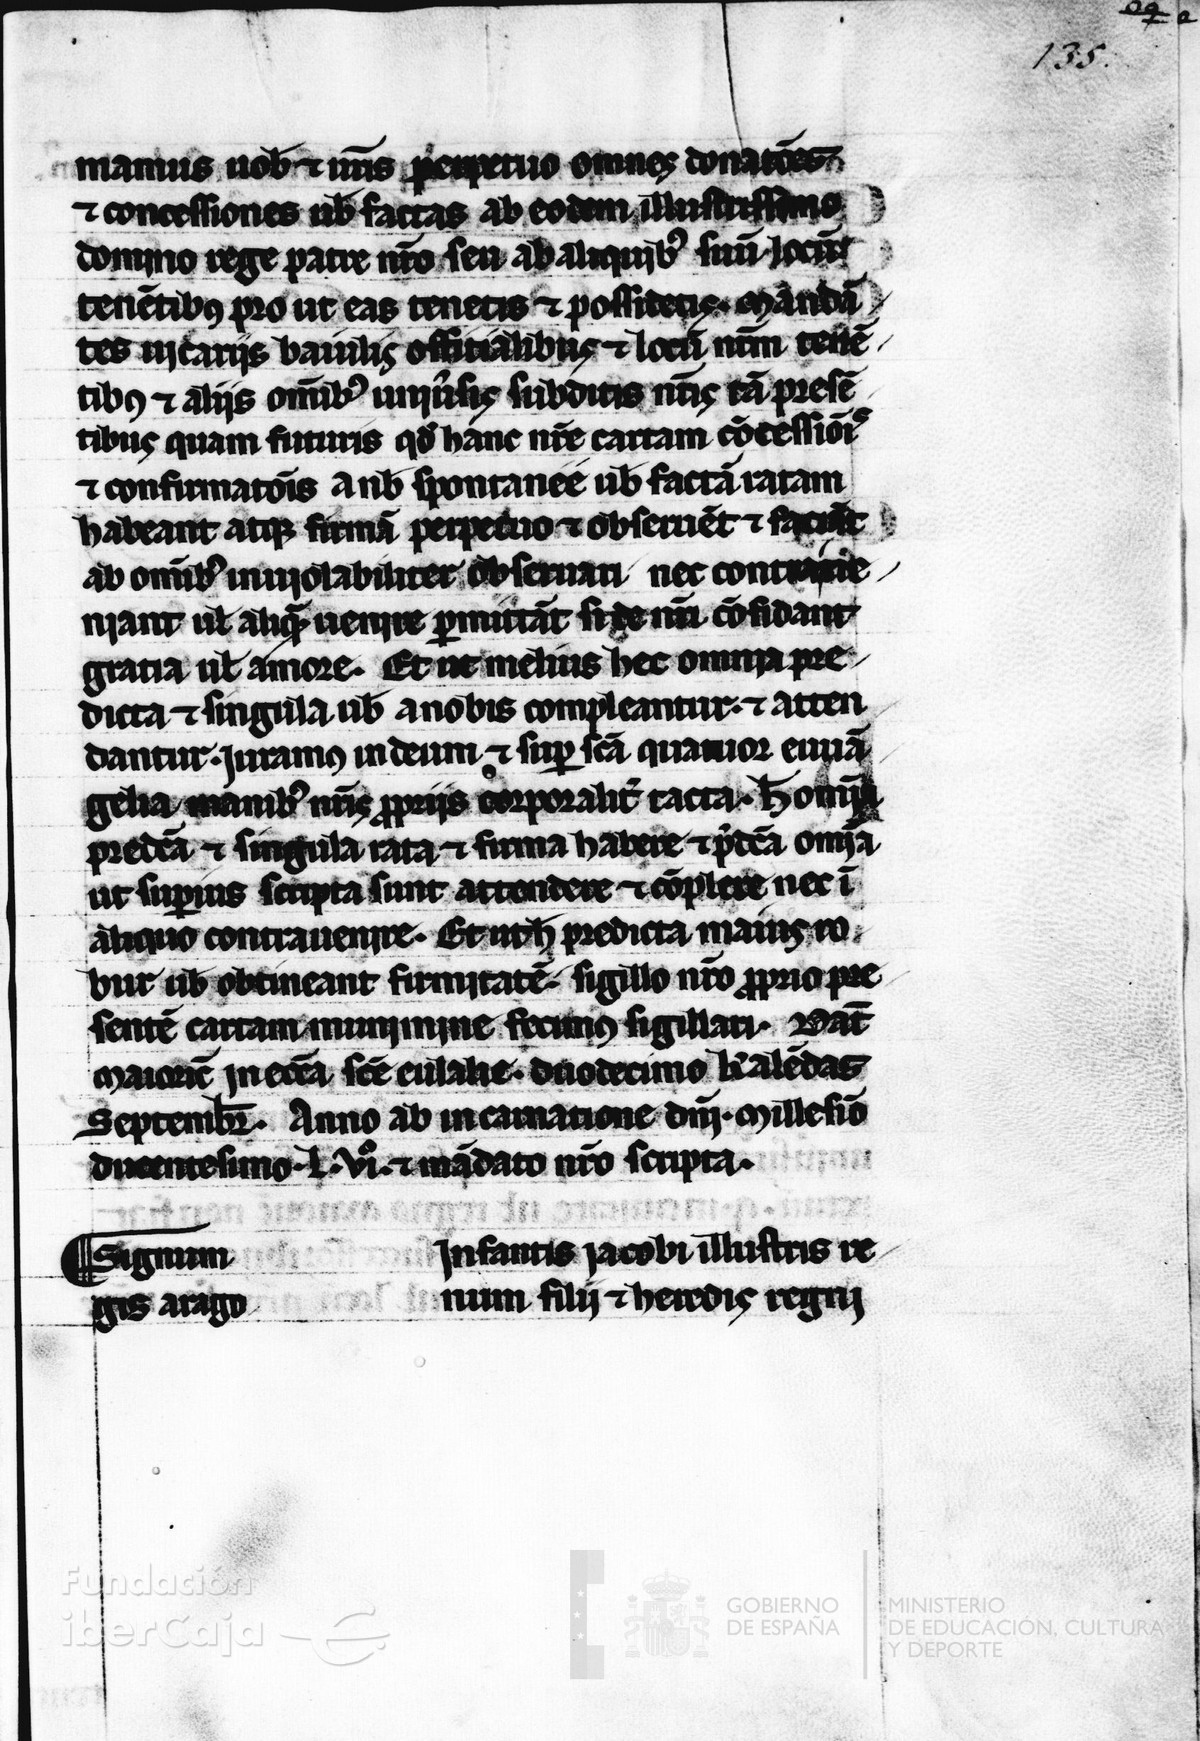 135.
mamus uob̄ ⁊ ur̄is perpetuo omnes donatōes
⁊ concessiones ub̄ factas ab eodem illustrissimo
domino rege patre nr̄o seu ab aliquib᾽ suū locū
tenētibꝯ pro ut eas tenetis ⁊ possidetis. Mandā
tes uicariis baiulis offitialibus ⁊ locū nr̄m tenē
tibꝯ ⁊ aliis om̄ib᾽ uniūsis subditis nr̄is tā presē
tibus quam futuris qd̄ hanc nr̄e cartam cōcessiōis
⁊ confirmatōis a nb̄ spontanee ub̄ factā ratam
habeant atqꝫ firmā perpetuo ⁊ obseruēt ⁊ faciāt
ab om̄ib᾽ inuiolabiliter obseruari nec contraue
niant ul̄ aliq̄ uenire ꝑmittāt si de nr̄i cōfidant
gratia ul̄ amore. Et ut melius hec omnia pre
dicta ⁊ singula ub̄ a nobis compleantur. ⁊ atten
dantur. Juramꝯ in deum ⁊ suꝑ sc̄a quatuor euuā
gelia manib᾽ nr̄is ꝓpriis corporalit̄ tacta. H̄ om̄ia
predc̄a ⁊ singula rata ⁊ firma habere ⁊ p̄dc̄a om̄ia
ut suꝑius scripta sunt attendere ⁊ cōplere nec ī
aliquo contrauenire. Et ut h̄ predicta maius ro
bur ub̄ obtineant firmitatē. sigillo nr̄o ꝓprio pre
sentē cartam munimine fecimꝯ sigillari. Dat̄
Maioric̄ in ecc̄a sc̄e eulalie. duodecimo kalēdas
Septembr̄. Anno ab incarnatione dn̄i. Millesiō
ducentesimo. L. vi. ⁊ mādato nr̄o scripta.
Signum Infantis Jacobi illustris re
gis arago num filii ⁊ heredis regni
Fundación
iberCaja
GOBIERNO
DE ESPAÑA
MINISTERIO
DE EDUCACIÓN, CULTURA
Y DEPORTE